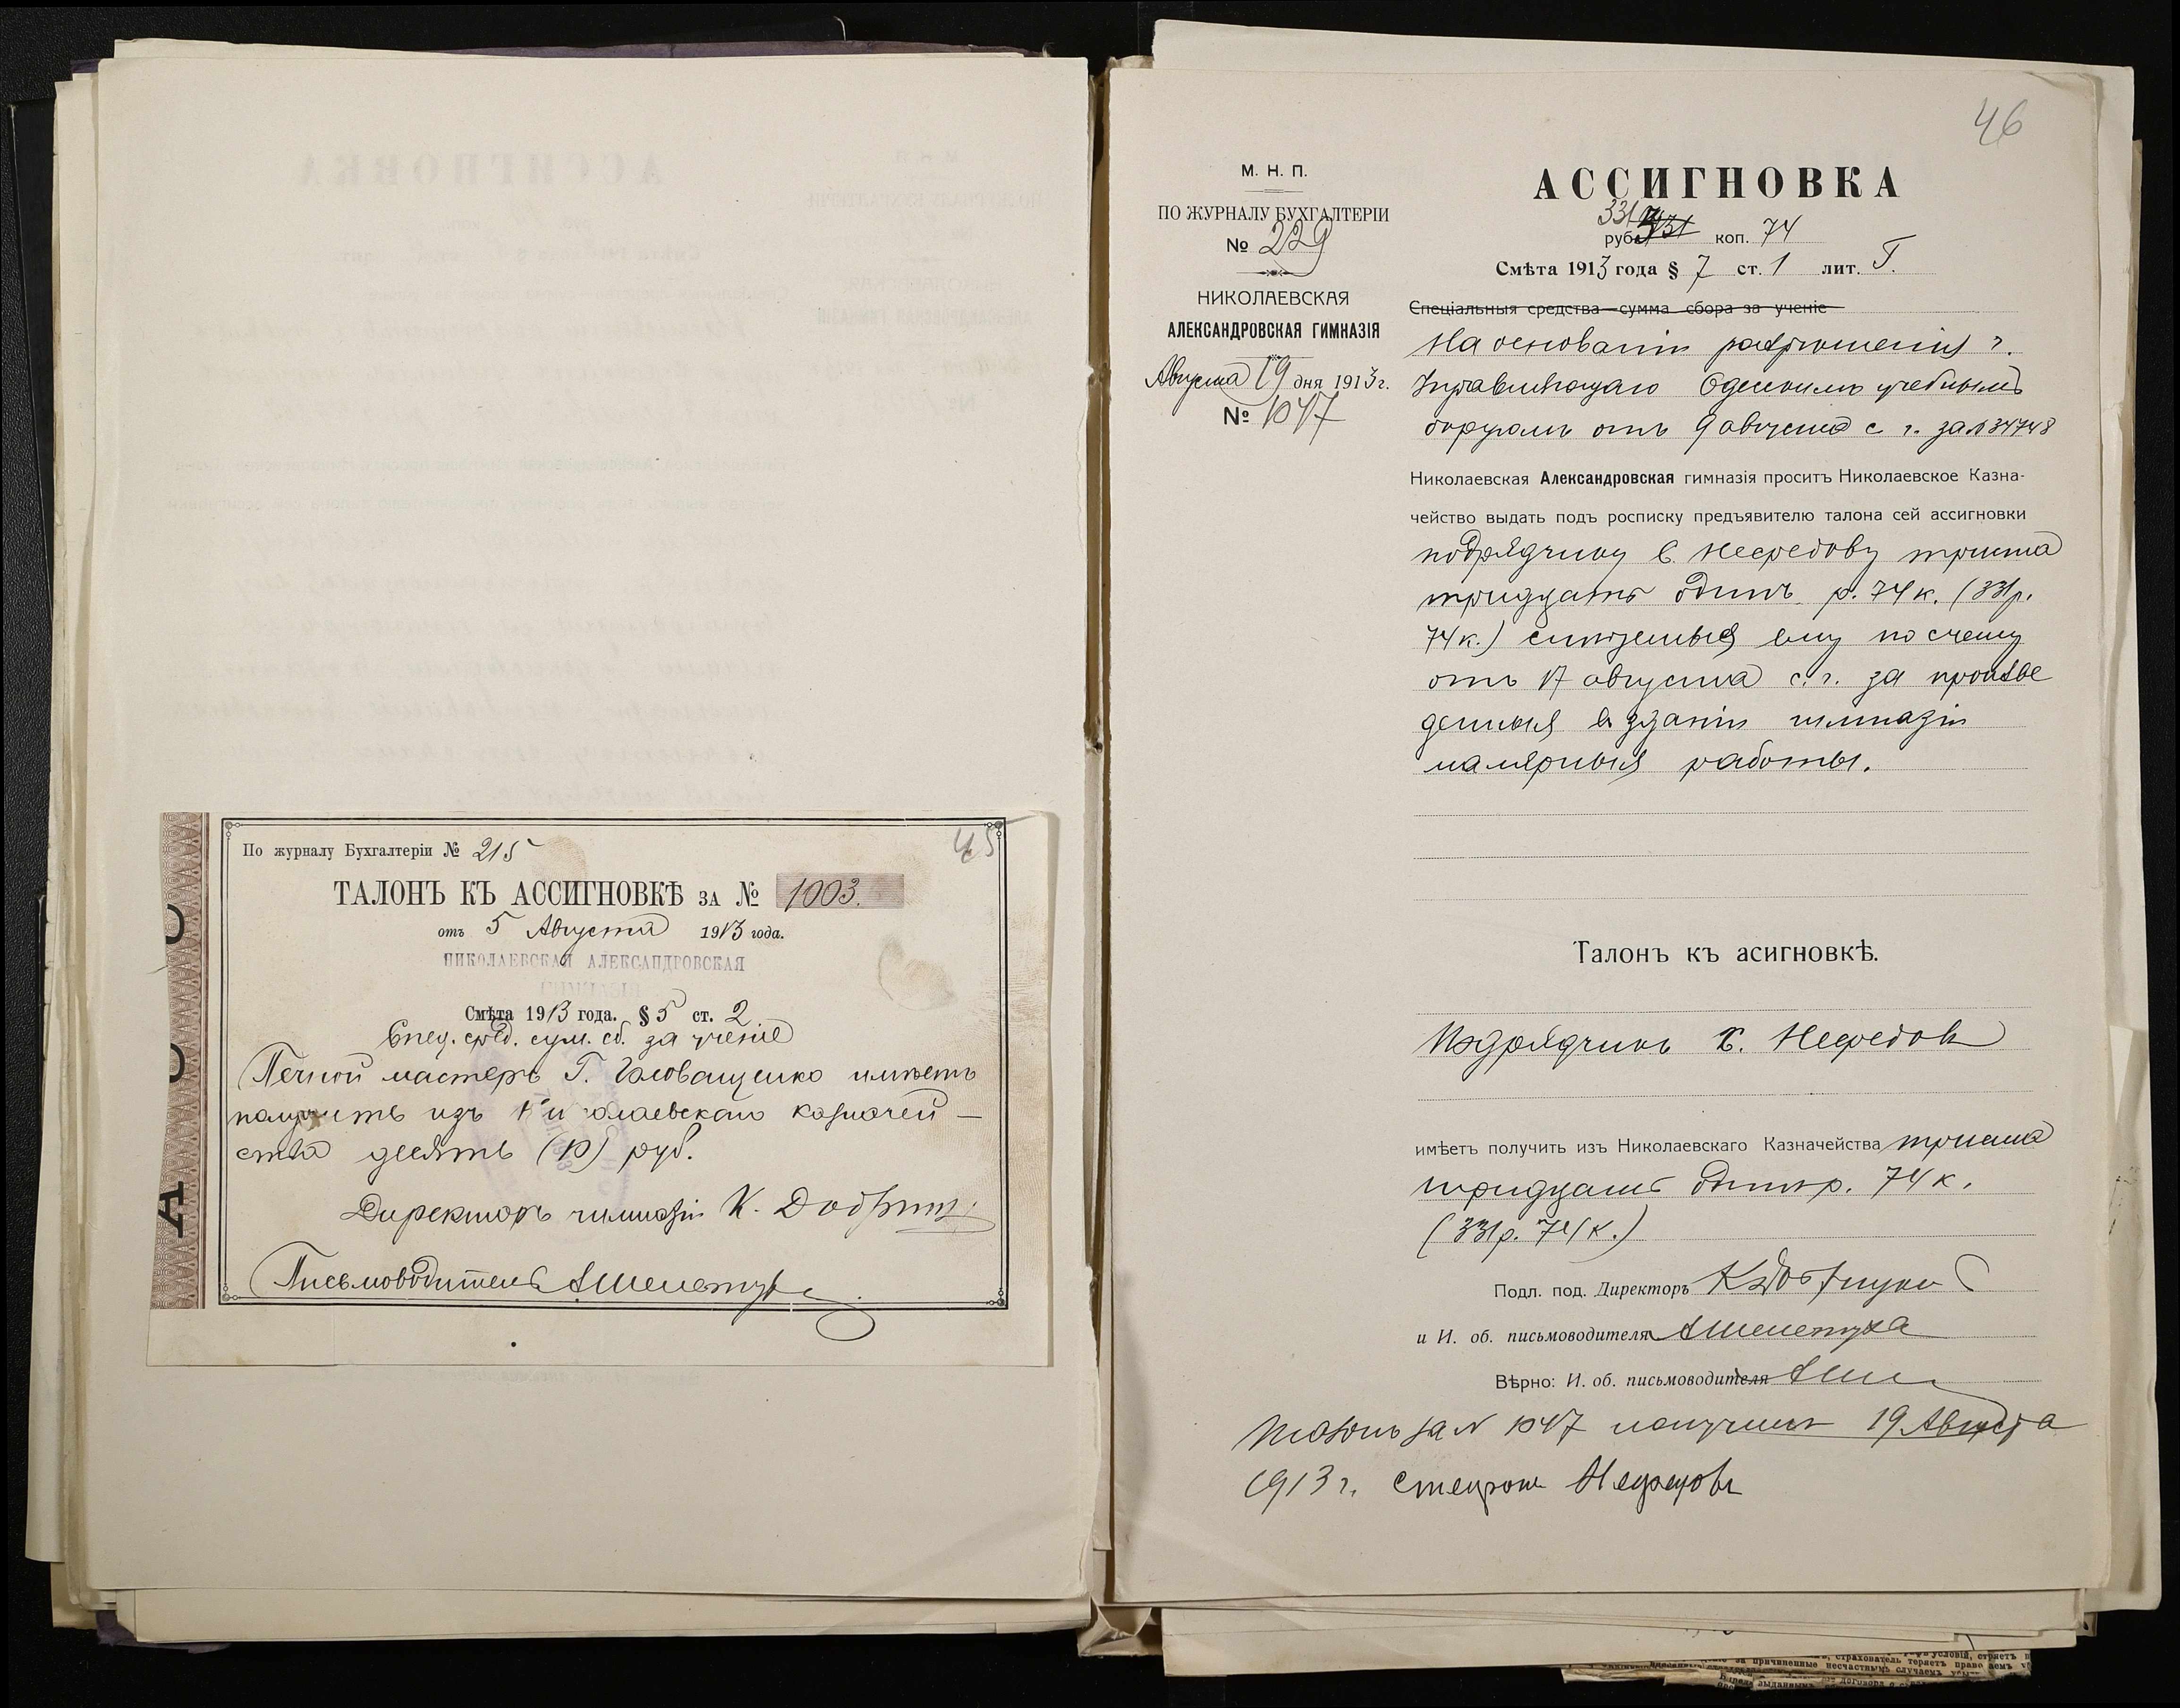 45
По журналу Бухгалтеріи № 215
ТАЛОНЪ КЪ АССИГНОВКѢ ЗА № 1003.
отъ 5 Августа 1913 года.
НИКОЛАЕВСКАЯ АЛЕКСАНДРОВСКАЯ
ГИМНАЗІЯ
Смѣта 1913 года. § 5 ст. 2
Спец. сред. сум. сб. за ученіе
Печной мастеръ Г. Головащенко имѣетъ
получить изъ Николаевскаго казначей-
ства десять (10) руб.
Директоръ гимназіи К.
Письмоводитель
46
М. Н. П.
ПО ЖУРНАЛУ БУХГАЛТЕРІИ
№ 229
НИКОЛАЕВСКАЯ
АЛЕКСАНДРОВСКАЯ ГИМНАЗІЯ
Августа 19 дня 1913 г.
№ 1047
АССИГНОВКА
331
руб. коп. 74
Смѣта 1913 года § 7 ст. 1 лит. Г.
Спеціальныя средства—сумма сбора за ученіе
На основаніи разрѣшенія г.
Управляющаго Одесскимъ учебнымъ
округомъ отъ 9 августа с. г. за № 34748
Николаевская Александровская гимназія проситъ Николаевское Казна-
чейство выдать подъ росписку предъявителю талона сей ассигновки
подрядчику С. Нефедову триста
тридцать одинъ р. 74 к. (331 р.
74 к.) слѣдуемыя ему по счету
отъ 17 августа с. г. за произве
денныя въ зданіи гимназіи
малярныя работы.
Талонъ къ асигновкѣ.
Подрядчикъ С. Нефедовъ
имѣетъ получить изъ Николаевскаго Казначейства триста
тридцать одинъ р. 74 к.
(331 р. 74 к.)
Подл. под. Директоръ К.
и И. об. письмоводителя А Шелестуха
Вѣрно: И. об. письмоводителя
Талонъ за № 1047 получилъ 19 Августа
1913 г. Нефедовъ